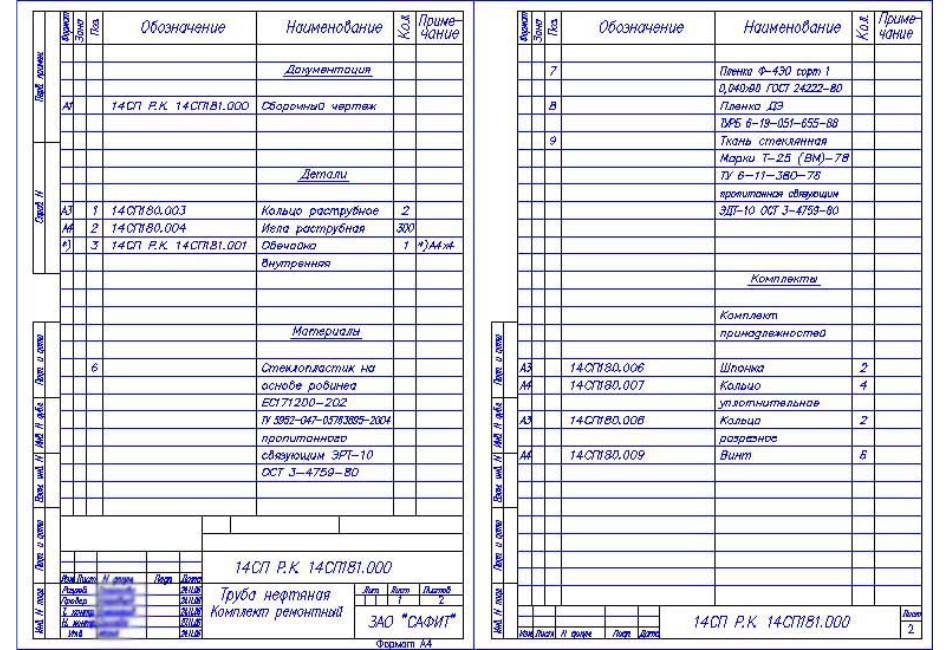 Формат Зона Поз. Обозначение Наименование Кол. Приме-
чание
Документация
А1 14СП Р.К. 14СП181.000 Сборочный чертеж
Детали
А3 1 14СП180.003 Кольцо раструбное 2
А4 2 14СП180.004 Игла раструбная 300
*) 3 14СП Р.К. 14СП181.001 Обечайка 1 *)А4х4
внутренняя
Материалы
6 Стеклопластик на
основе ровинга
ЕС171200-202
ТУ 5952-047-05763895-2004
пропитанного
связующим ЭРТ-10
ОСТ 3-4759-80
Перв. примен.
Справ. N
Подп. и дата
Инв. N дубл.
Взам. инв. N
Подп. и дата
Инв. N подл.
14СП Р.К. 14СП181.000
Изм. Лист N докум. Подп. Дата
Разраб.
Провер.
Т. контр.
Н. контр.
Утв.
Труба нефтяная
Комплект ремонтный
Лит. Лист Листов
1 2
ЗАО "САФИТ"
Формат А4
Формат Зона Поз. Обозначение Наименование Кол. Приме-
чание
7 Пленка Ф-4ЭО сорт 1
0,040х90 ГОСТ 24222-80
8 Пленка ДЭ
ТУРБ 6-19-051-655-88
9 Ткань стеклянная
Марки Т-25 (ВМ)-78
ТУ 6-11-380-76
пропитанная связующим
ЭДТ-10 ОСТ 3-4759-80
Комплекты
Комплект
принадлежностей
А3 14СП180.006 Шпонка 2
А4 14СП180.007 Кольцо 4
уплотнительное
А3 14СП180.008 Кольцо 2
разрезное
А4 14СП180.009 Винт 6
Подп. и дата
Инв. N дубл.
Взам. инв. N
Подп. и дата
Инв. N подл.
Изм. Лист N докум. Подп. Дата
14СП Р.К. 14СП181.000
Лист
2